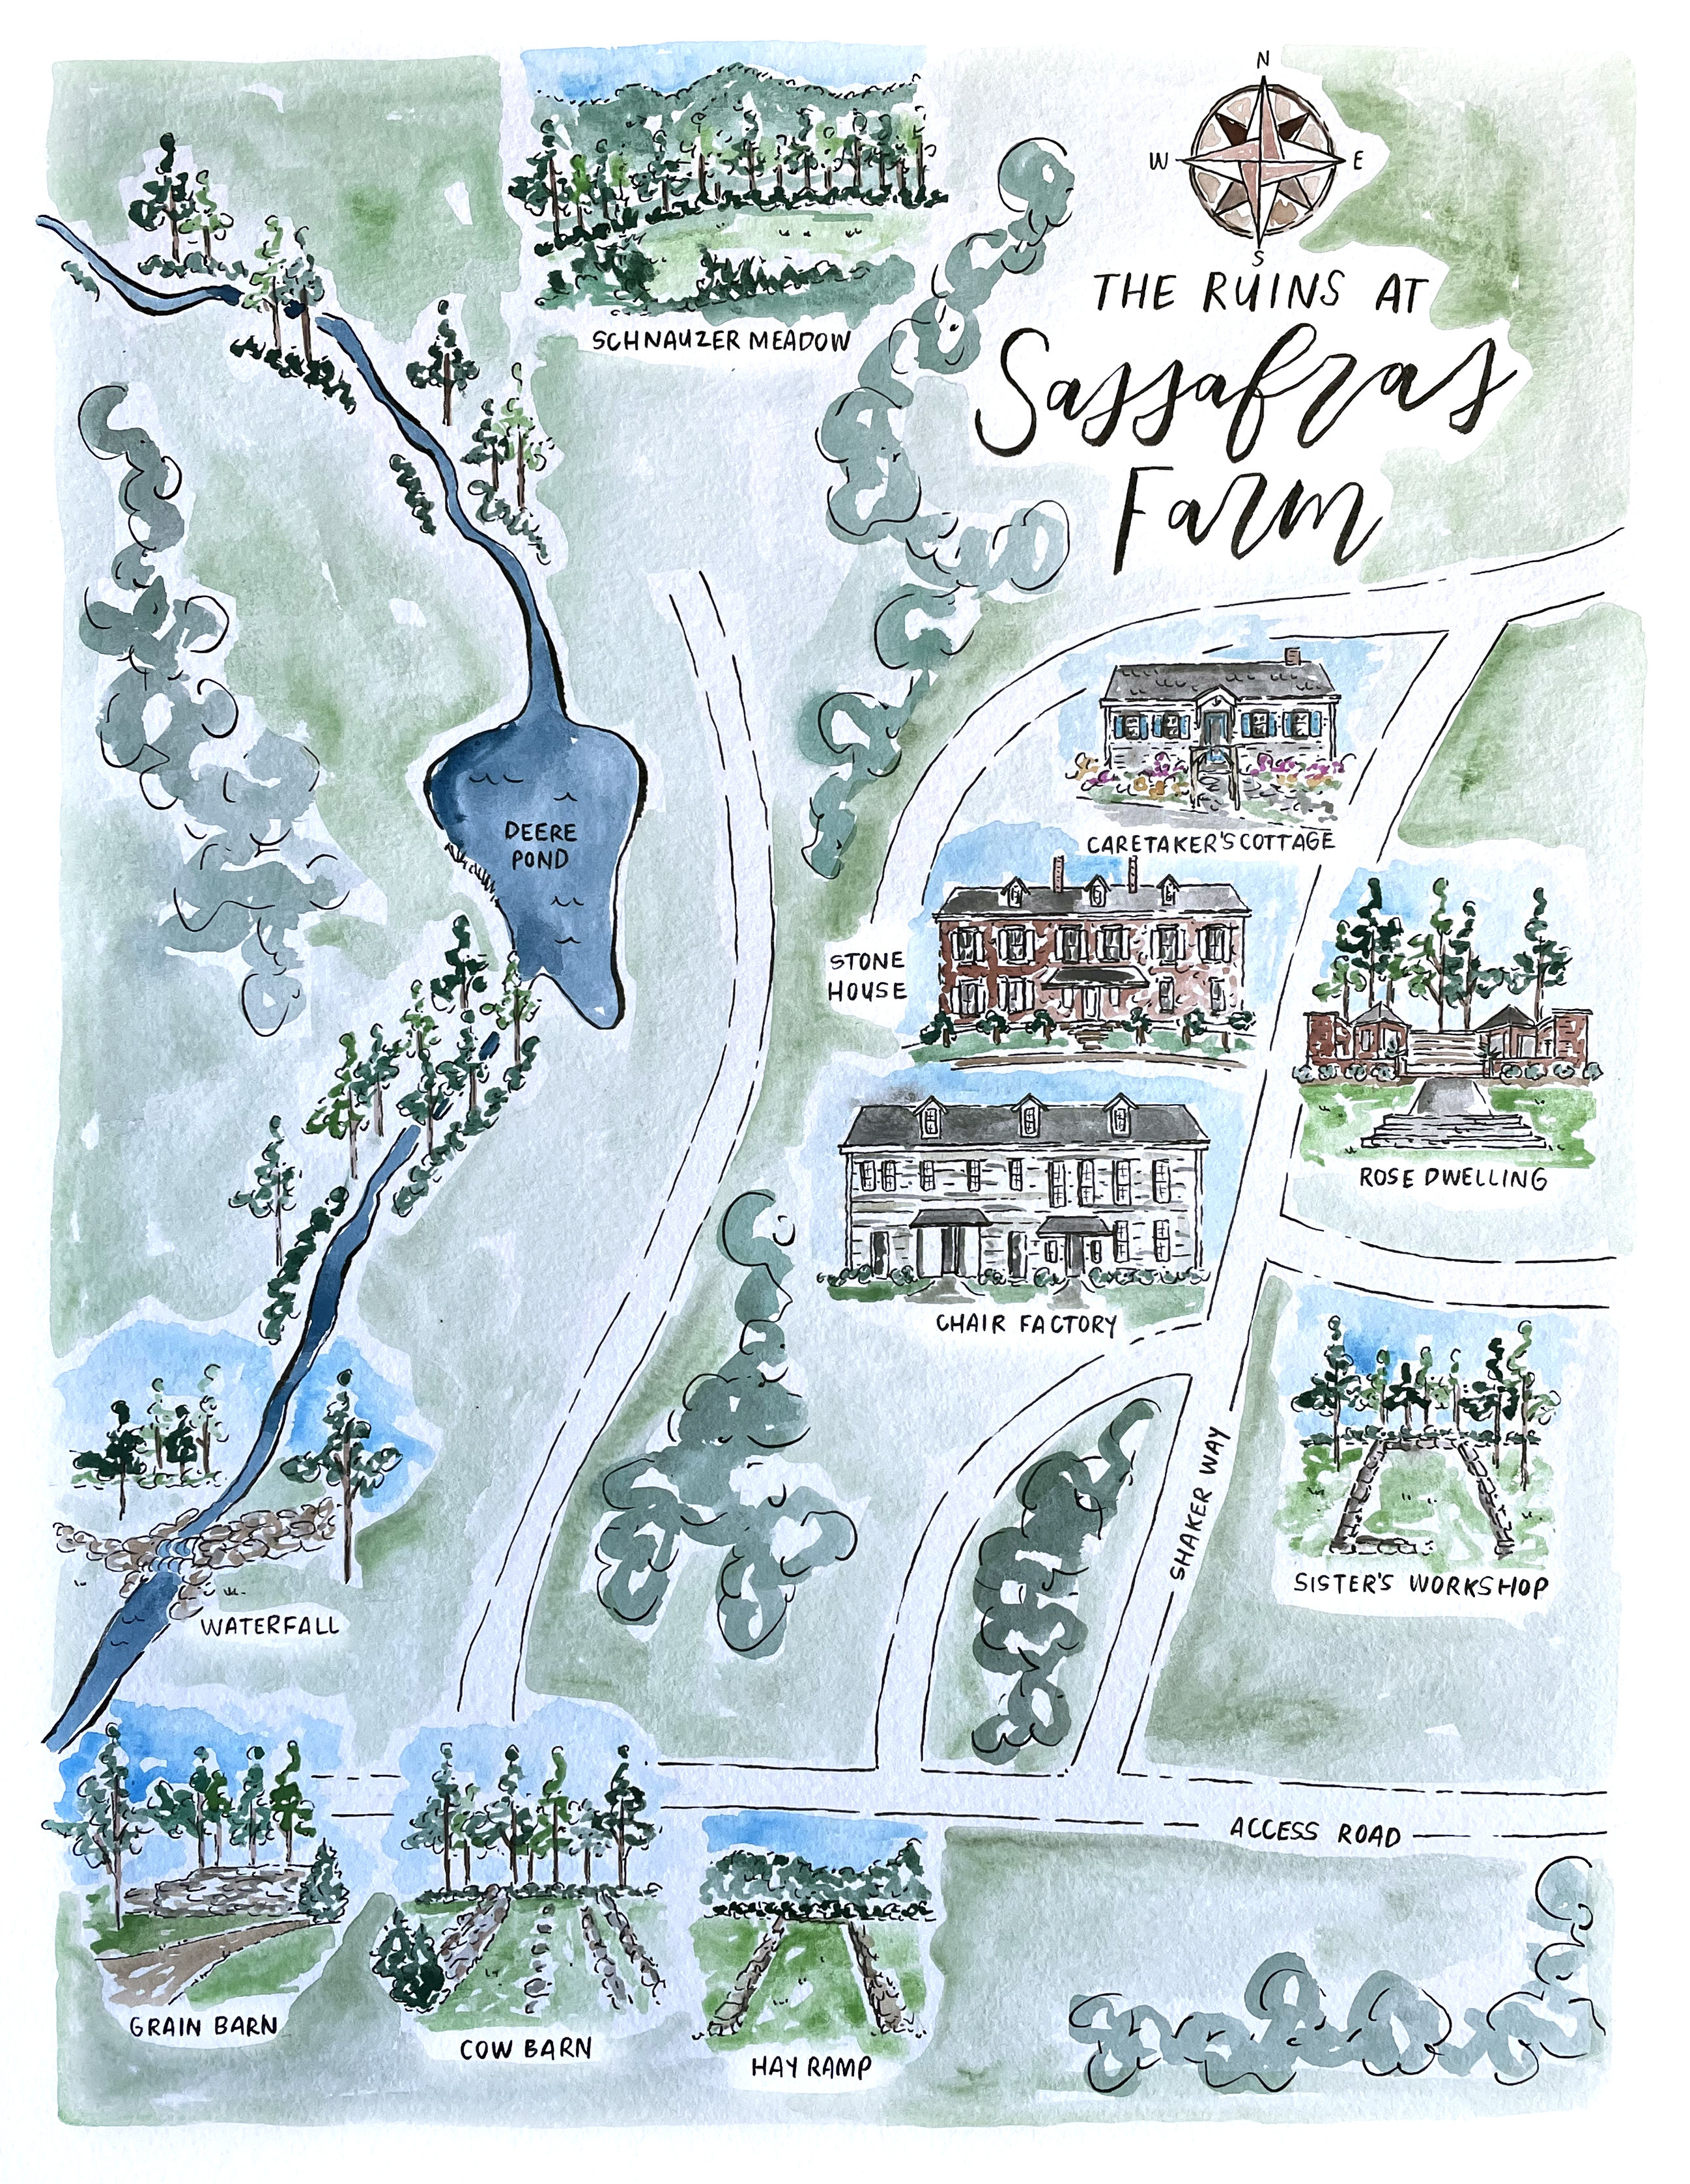 N
W E
S
THE RUINS AT
Sassafras
Farm
SCHNAUZER MEADOW
DEERE
POND
CARETAKER'S COTTAGE
STONE
HOUSE
ROSE DWELLING
CHAIR FACTORY
SHAKER WAY
SISTER'S WORKSHOP
WATERFALL
ACCESS ROAD
GRAIN BARN
COW BARN
HAY RAMP